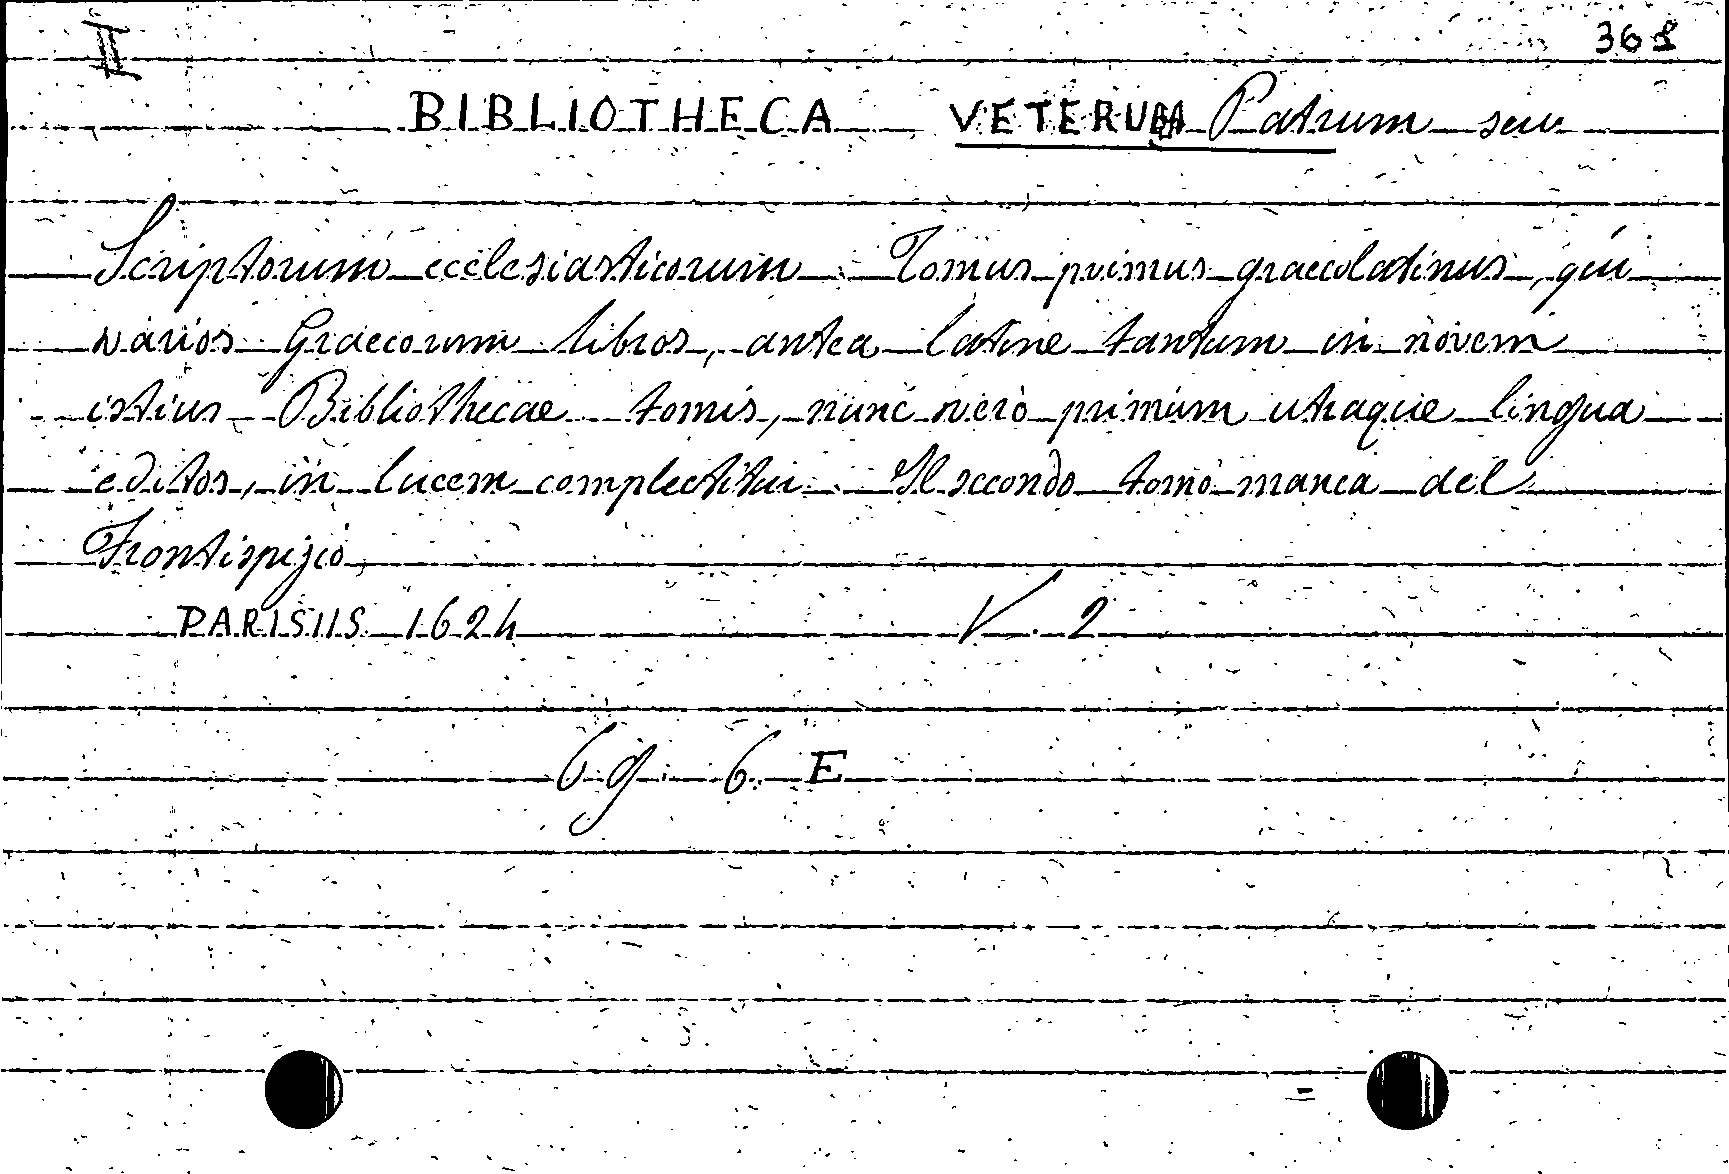 II
368
BIBLIOTHECA VETERUM Patrum seu
Scriptorum ecclesiasticorum. Tomus primus graecolatinus, qui
varios Graecorum libros, antea latine tantum in novem
istius Bibliothecae tomis, nunc vero primum utraque lingua
editos, in lucem complectitur. Il secondo tomo manca del
Frontispizio,
PARISIIS 1624 V. 2
6 g. 6. E